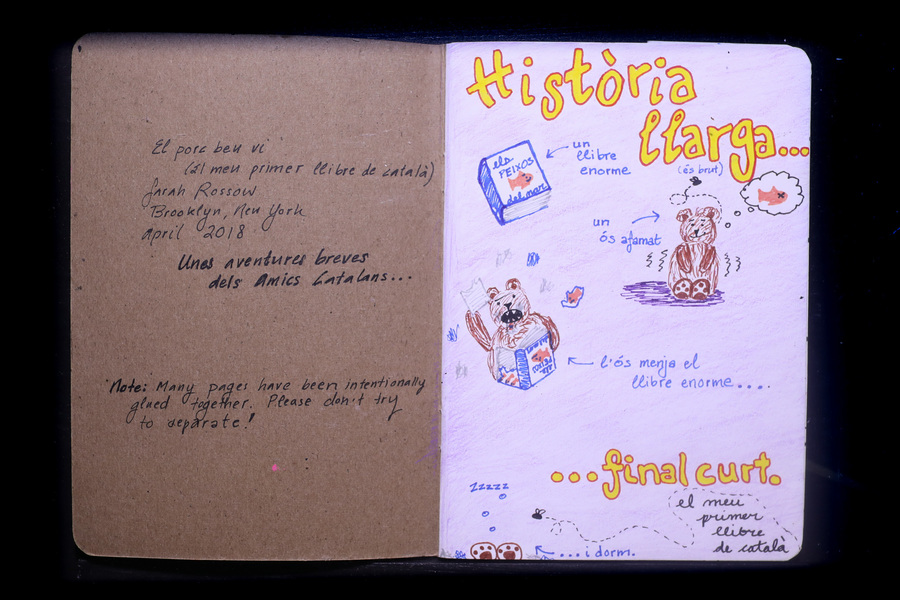 El porc beu vi
(El meu primer llibre de català)
Sarah Rossow
Brooklyn, New York
April 2018
Unes aventures breves
dels Amics Catalans...
Note: Many pages have been intentionally
glued together. Please don't try
to separate!
Història
llarga...
els
PEIXOS
del mar
un
llibre
enorme
(ós brut)
un
ós afamat
l'ós menja el
llibre enorme....
...final curt.
zzzzz
el meu
primer
llibre
de català
...i dorm.